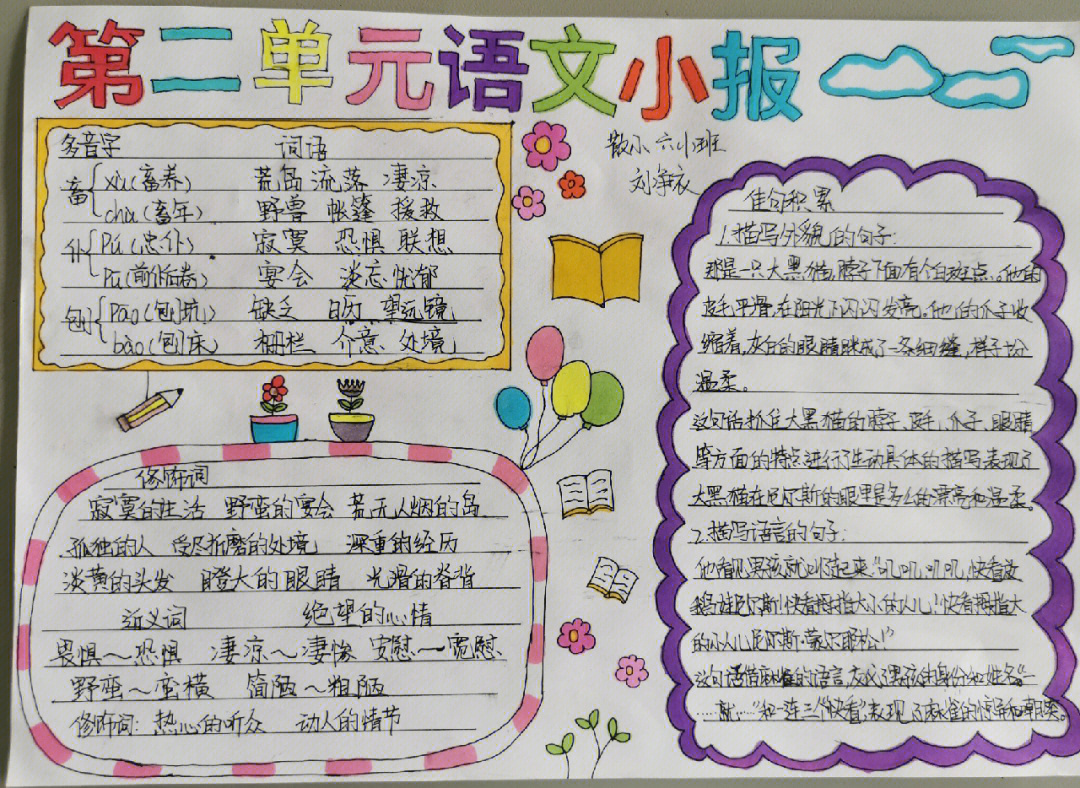 第二单元语文小报
散小六小班
刘净衣
多音字 词语
畜 xù(畜养) 荒岛 流落 凄凉
chù(畜牛) 野兽 帐篷 援救
仆 Pú(忠仆) 寂寞 恐惧 联想
Pū(前仆后卷) 宴会 淡忘 忧郁
刨 Páo(刨坑) 缺乏 日历 望远镜
bào(刨床) 栅栏 介意 处境
佳句积累
1.描写外貌的句子:
那是一只大黑猫,脖子下面有个白斑点。他的
皮毛平滑,在阳光下闪闪发亮。他的爪子收
缩着,灰白的眼睛眯成了一条细缝,样子十分
温柔。
这句话抓住大黑猫的脖子、皮毛、爪子、眼睛
等方面的特点进行了生动具体的描写表现了
大黑猫在尼尔斯的眼里是多么的漂亮和温柔。
2.描写语言的句子:
他看见男孩就叫起来:“叽叽,叽叽,快看放
鹅娃尼尔斯!快看拇指大小的人儿!快看拇指大
的小人儿尼尔斯·豪尔耶松!”
这句话借麻雀的语言,交代了男孩的身份和姓名“一
……就……”和一连三个“快看”表现了麻雀的惊异和嘲笑。
修饰词
寂寞的生活 野蛮的宴会 荒无人烟的岛
孤独的人 受尽折磨的处境 深重的经历
淡黄的头发 瞪大的眼睛 光滑的脊背
近义词 绝望的心情
畏惧~恐惧 凄凉~凄惨 安慰~宽慰
野蛮~蛮横 简陋~粗陋
修饰词: 热心的听众 动人的情节